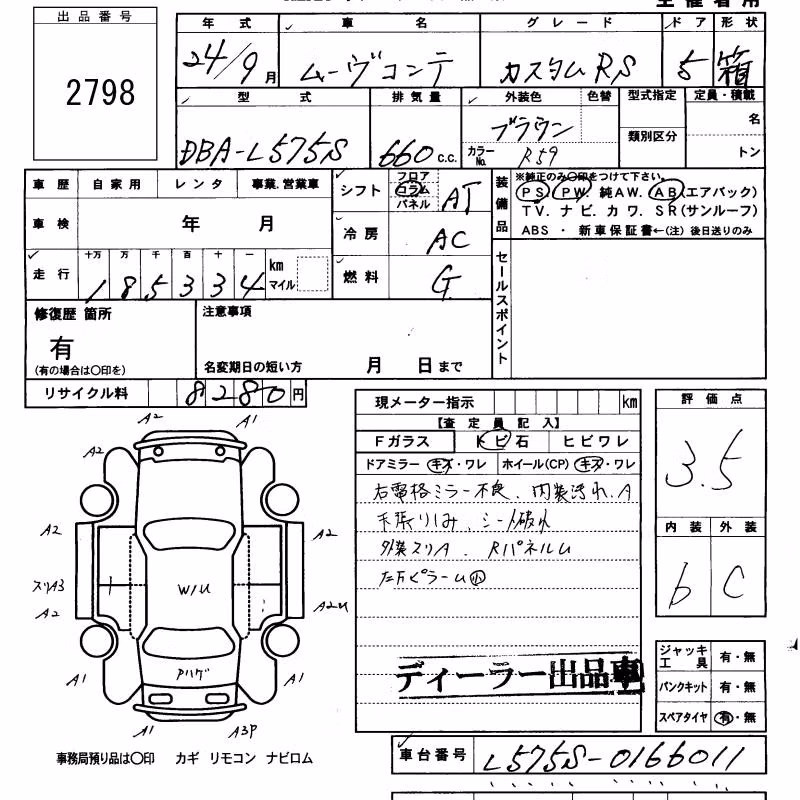 出品番号
2798
年式 車名 グレード ドア 形状
24/9月 ムーヴコンテ カスタムRS 5 箱
型式 排気量 外装色 色替 型式指定 定員・積載
DBA-L575S 660c.c. ブラウン カラーNo. R59 類別区分 名 トン
車歴 自家用 レンタ 事業.営業車
車検 年 月
走行 十万 万 千 百 十 一 km マイル
185334
シフト フロア コラム パネル AT
冷房 AC
燃料 G
装備品 ※純正のみ○印をつけて下さい。
PS PW 純AW. AB(エアバック)
TV. ナビ. カワ. SR(サンルーフ)
ABS ・ 新車保証書←(注) 後日送りのみ
セールスポイント
修復歴 箇所
有
(有の場合は○印を)
注意事項
名変期日の短い方 月 日まで
リサイクル料 8280円
現メーター指示 km
【査定員記入】
Fガラス トビ石 ヒビワレ
ドアミラー キズ・ワレ ホイール(CP) キズ・ワレ
右電格ミラー不良、内装汚れ.A
天張りしみ、シート破れ
外装スリA Rパネルム
ディーラー出品車
評価点
3.5
内装 外装
b C
ジャッキ工具 有・無
パンクキット 有・無
スペアタイヤ 有・無
A2 A1
A2
A2 A2
スリA3
A2 A2U
W/U
A1 A1
A1 A3P
事務局預り品は○印 カギ リモコン ナビロム
車台番号 L575S-0166011